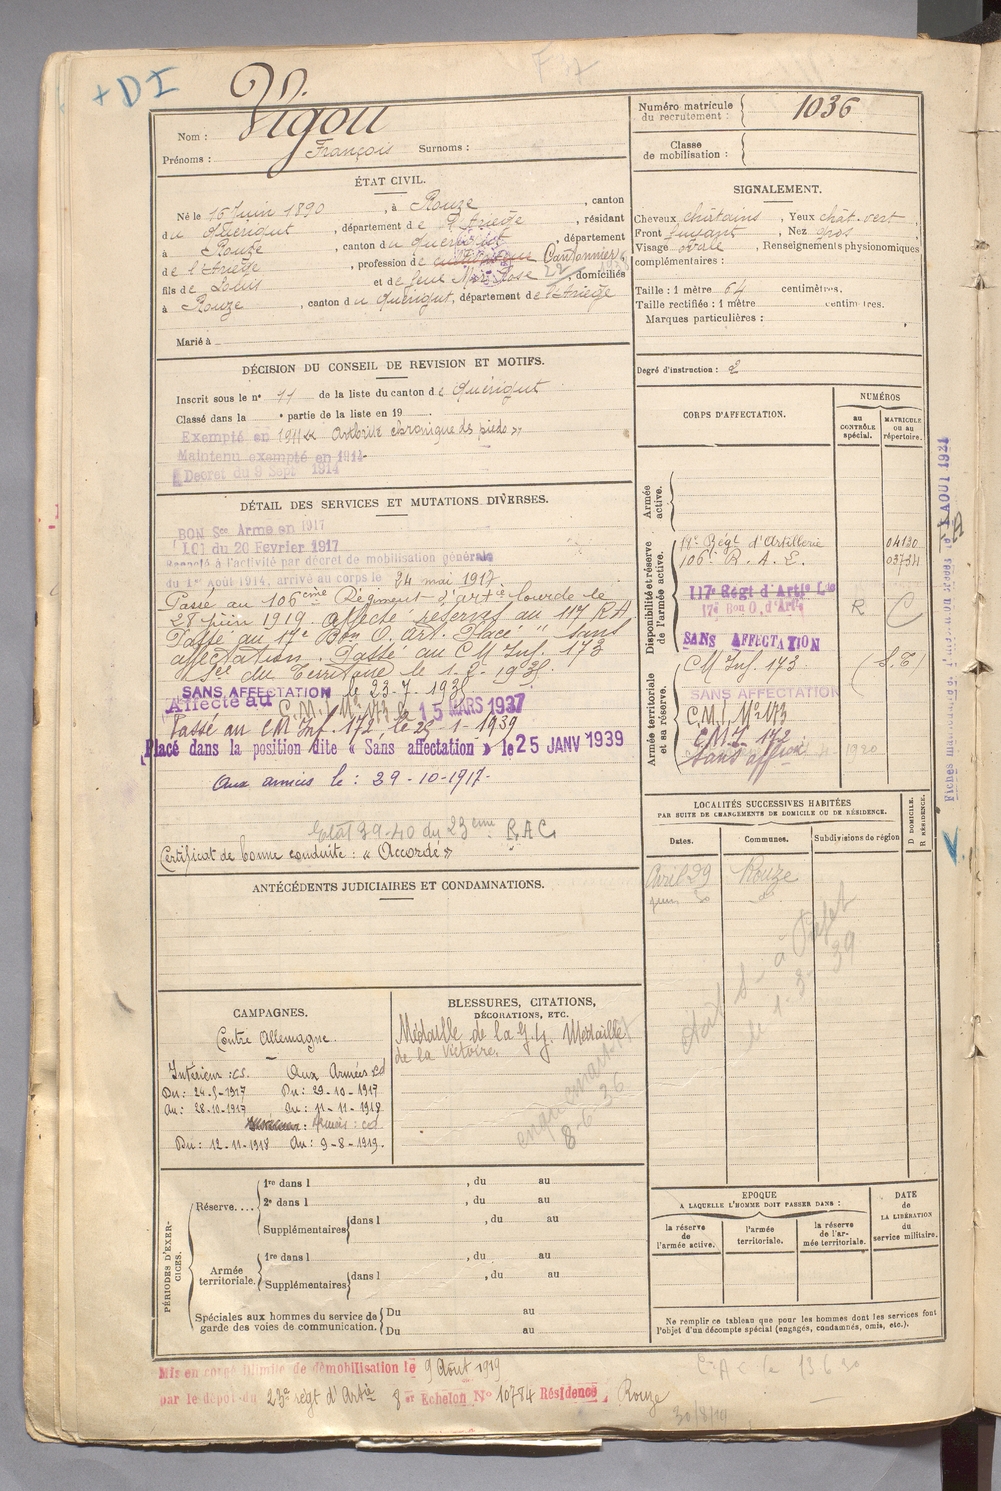 + DI
Nom : Vigou
Prénoms : François Surnoms :
Numéro matricule
du recrutement : 1036
Classe
de mobilisation :
ÉTAT CIVIL.
Né le 16 Juin 1890, à Rouze, canton
du Quérigut, département de l'Ariège, résidant
à Rouze, canton du Quérigut, département
de l'Ariège, profession de Cantonnier
fils de Louis et de feue Rose, domiciliés
à Rouze, canton du Quérigut, département de l'Ariège
Marié à
SIGNALEMENT.
Cheveux châtains, Yeux chât. vert,
Front fuyant, Nez gros
Visage ovale, Renseignements physionomiques
complémentaires :
Taille : 1 mètre 64 centimètres.
Taille rectifiée : 1 mètre centimètres.
Marques particulières :
Degré d'instruction : 2
DÉCISION DU CONSEIL DE REVISION ET MOTIFS.
Inscrit sous le n° 11 de la liste du canton de Quérigut
Classé dans la e partie de la liste en 19
Exempté en 1911 « Arthrite chronique des pieds »
Maintenu exempté en 1914
Décret du 9 Sept 1914
DÉTAIL DES SERVICES ET MUTATIONS DIVERSES.
BON Sce Armé en 1917
LOI du 20 Fevrier 1917
Rappelé à l'activité par décret de mobilisation générale
du 1er Août 1914, arrivé au corps le 24 mai 1917.
Passé au 106ème Régiment d'artie lourde le
28 juin 1919. affecté réserves au 117 RA
Passé au 17e Bon O. Art. Placé " sans
affectation. Passé au CM Inf. 173
Sce du Territoire le
SANS AFFECTATION le 23-7-
Affecté au C.M.I. N° 173 le 15 MARS 1937
Passé au CM Inf. 172, le 25-1-1939
Placé dans la position dite « Sans affectation » le 25 JANV 1939
Aux armées le : 29-10-1917-
39-40 du 23ème R.A.C.
Certificat de bonne conduite : « Accordé »
CORPS D'AFFECTATION.
NUMÉROS
au
CONTRÔLE
spécial.
MATRICULE
OU AU
répertoire.
Armée
active.
Disponibilité et réserve
de l'armée active.
Régt d'Artillerie 04120
106e R. A. L.
117e Régt d'Artie Lde
17e Bon O. d'Artie R C
SANS AFFECTATION
Armée territoriale
et sa réserve.
CM Inf. 173 (S.T)
SANS AFFECTATION
C.M.I. N° 173
C.M.I. 172
Sans affion
ANTÉCÉDENTS JUDICIAIRES ET CONDAMNATIONS.
LOCALITÉS SUCCESSIVES HABITÉES
PAR SUITE DE CHANGEMENTS DE DOMICILE OU DE RÉSIDENCE.
D DOMICILE.
R RÉSIDENCE.
Dates. Communes. Subdivisions de région
Avril 29 Rouze
1-3-39
CAMPAGNES.
Contre Allemagne
Intérieur : cs. Aux Armées cd
Du : 24-5-1917 Du : 29-10-1917
Au : 28-10-1917 Au : 11-11-1918
Armées : cd
Du : 12-11-1918 Au : 9-8-1919.
BLESSURES, CITATIONS,
DÉCORATIONS, ETC.
Médaille de la G. G. Médaille
de la Victoire.
8-6-36
PÉRIODES D'EXERCICES.
Réserve....
1re dans l , du au
2e dans l , du au
Supplémentaires dans l , du au
Armée
territoriale.
1re dans l , du au
Supplémentaires dans l , du au
Spéciales aux hommes du service de
garde des voies de communication.
Du au
Du au
EPOQUE
A LAQUELLE L'HOMME DOIT PASSER DANS :
la réserve
de
l'armée active.
l'armée
territoriale.
la réserve
de l'ar-
mée territoriale.
DATE
de
LA LIBÉRATION
du
service militaire.
Ne remplir ce tableau que pour les hommes dont les services font
l'objet d'un décompte spécial (engagés, condamnés, omis, etc.).
Mis en congé illimité de démobilisation le 9 Août 1919
par le dépôt du 23e régt d'Artie 8er Echelon N° 10784 Résidence, Rouze
30/8/19